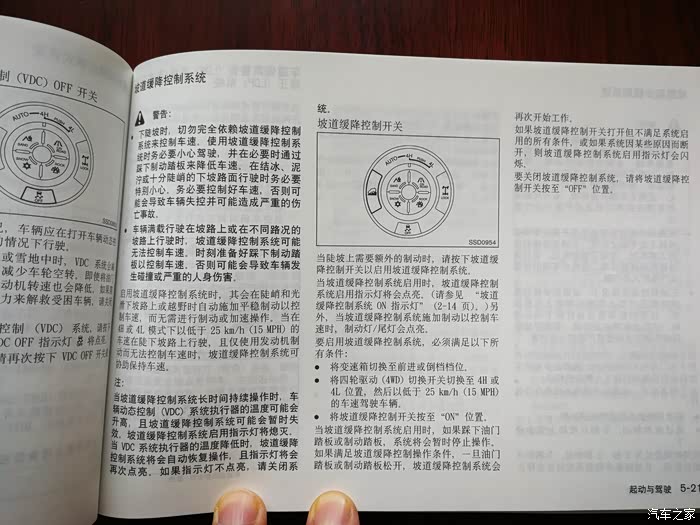 制 (VDC) OFF 开关
AUTO
4H
SSD0953
车辆应在打开车辆动态
的情况下行驶。
或雪地中时, VDC 系统会
减少车轮空转, 即使将油
动机转速也会降低。如果
力来解救受困车辆, 请关
控制 (VDC) 系统, 请按下
DC OFF 指示灯 将点亮。
请再次按下 VDC OFF 开关
坡道缓降控制系统
警告:
• 下陡坡时, 切勿完全依赖坡道缓降控制
系统来控制车速。使用坡道缓降控制系
统时务必要小心驾驶, 并在必要时通过
踩下制动踏板来降低车速。在结冰、泥
泞或十分陡峭的下坡路面行驶时务必要
特别小心。务必要控制好车速, 否则可
能会导致车辆失控并可能造成严重的伤
亡事故。
• 车辆满载行驶在坡路上或在不同路况的
坡路上行驶时, 坡道缓降控制系统可能
无法控制车速。时刻准备好踩下制动踏
板以控制车速, 否则可能会导致车辆发
生碰撞或严重的人身伤害。
启用坡道缓降控制系统时, 其会在陡峭和光
滑下坡路上或越野时自动施加平稳制动以控
制车速, 而无需进行制动或加速操作。当在
4H 或 4L 模式下以低于 25 km/h (15 MPH) 的
车速在陡下坡路上行驶, 且仅使用发动机制
动而无法控制车速时, 坡道缓降控制系统可
协助保持车速。
注:
当坡道缓降控制系统长时间持续操作时, 车
辆动态控制 (VDC) 系统执行器的温度可能会
升高, 且坡道缓降控制系统可能会暂时失
效, 坡道缓降控制系统启用指示灯将熄灭。
当 VDC 系统执行器的温度降低时, 坡道缓降
控制系统将会自动恢复操作, 且指示灯将会
再次点亮。如果指示灯不点亮, 请关闭系
统。
坡道缓降控制开关
AUTO
4H
SSD0954
当陡坡上需要额外的制动时, 请按下坡道缓
降控制开关以启用坡道缓降控制系统。
当坡道缓降控制系统启用时, 坡道缓降控制
系统启用指示灯将会点亮。(请参见 “坡道
缓降控制系统 ON 指示灯” (2-14 页)。)另
外, 当坡道缓降控制系统施加制动以控制车
车速时, 制动灯/尾灯会点亮。
要启用坡道缓降控制系统, 必须满足以下所
有条件:
• 将变速箱切换至前进或倒档档位。
• 将四轮驱动 (4WD) 切换开关切换至 4H 或
4L 位置, 然后以低于 25 km/h (15 MPH)
的车速驾驶车辆。
• 将坡道缓降控制开关按至 “ON” 位置。
当坡道缓降控制系统启用时, 如果踩下油门
踏板或制动踏板, 系统将会暂时停止操作。
如果满足坡道缓降控制操作条件, 一旦油门
踏板或制动踏板松开, 坡道缓降控制系统会
再次开始工作。
如果坡道缓降控制开关打开但不满足系统启
用的所有条件, 或如果系统因某些原因而断
开, 则坡道缓降控制系统启用指示灯会闪
烁。
要关闭坡道缓降控制系统, 请将坡道缓降控
制开关按至 “OFF” 位置。
起动与驾驶 5-21
汽车之家